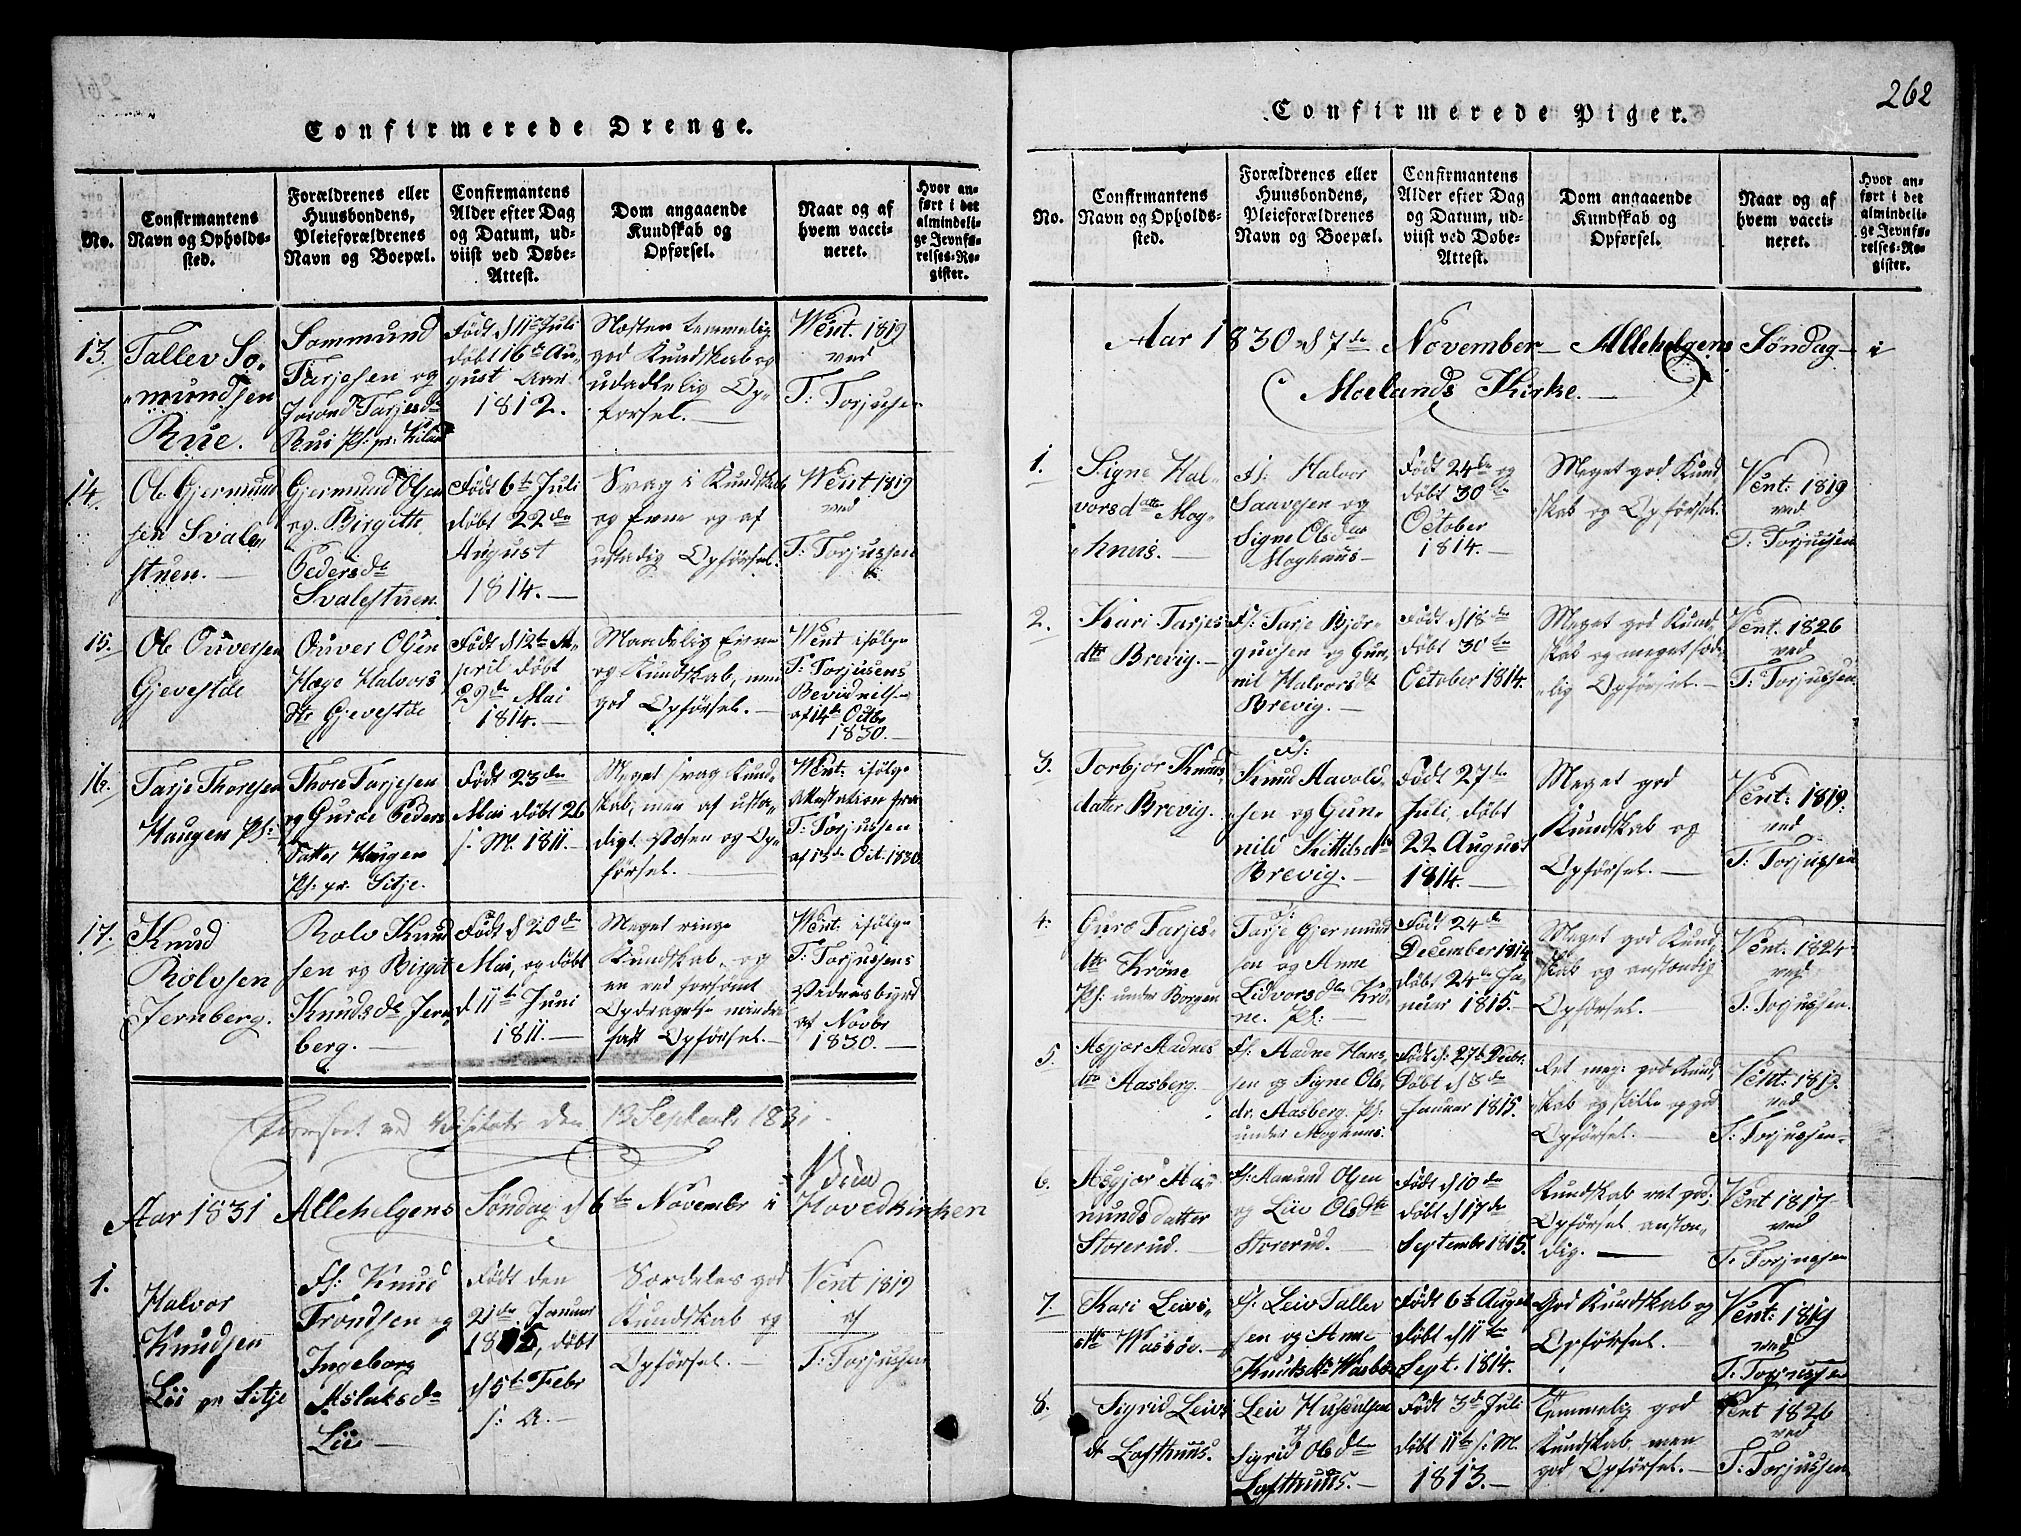 262
Confirmerede Drenge.
No.
Confirmantens
Navn og Opholds-
sted.
Forældrenes eller
Huusbondens,
Pleieforældrenes
Navn og Boepæl.
Confirmantens
Alder efter Dag
og Datum, ud-
viist ved Døbe-
Attest.
Dom angaaende
Kundskab og
Opførsel.
Naar og af
hvem vacci-
neret.
Hvor an-
ført i det
almindeli-
ge Jevnfø-
relses-Re-
gister.
13.
Tallev So-
mundsen
Rue.
Sommund
Tarjesen og
Jorond Tarjesdr
Rui Pl: pr:
Født d 11te Juli
døbt 16de Au-
gust Anno
1812.
Næsten temmelig
god Kundskab og
udadlelig Op-
førsel.
Vent. 1819
ved
T: Torjussen
14.
Ole Gjermund
sen Svale-
stuen.
Gjermund Olsen
og Birgitte
Pedersdr
Svalestuen.
Født 6te Juli
døbt 22de
August
1814.
Svag i Kundskab
og Evne og af
ustadig Opførsel.
Vent 1819
ved
T: Torjussen
15.
Ole Ouversen
Gjevestde
Ouver Olsen
Hæge Halvors
dtr Gjevestde
Født d 12te A-
pril døbt
29de Mai
1814.
Maadelig Evne
og Kundskab, men
god Opførsel.
Vent ifølge
T: Torjusens
af 14de Octbr
1830.
16.
Tarje Thoresen
Haugen Pl:
Thore Tarjesen
og Guroe Peders
Datter Haugen
Pl: pr. Sitje.
Født 23de
Mai døbt 26
s. M. 1811.
Meget svag Kund-
skab, men af usta-
digt Væsen og Op-
førsel.
Vent: ifølge
Attestation fra
T: Torjussen
af 13de Oct: 1830
17.
Knud
Rolvsen
Jernberg.
Rolv Knud
sen og Birgit
Knudsdr Jern-
berg.
Født d 20de
Mai, og døbt
d 11te Juni
1811.
Meget ringe
Kundskab og
en ved forsømt
Opdragelse mindre
fast Opførsel.
Vent: ifølge
T: Torjussens
af Novbr
1830.
ved Visitats den 13 Septembr 1831
Aar 1831 Allehelgens Søndag d 6te Novembr i Hovedkirken
1.
Halvor
Knudsen
Lii pr Sitje
F: Knud
Trondsen og
Ingeborg
Aslaksdr
Lii
Født den
21de Januar
1815, døbt
d 5te Febr
s: A.
Særdeles god
Kundskab og
Opførsel.
Vent 1819
af
T: Torjussen
Confirmerede Piger.
No.
Confirmantens
Navn og Opholds-
sted.
Forældrenes eller
Huusbondens,
Pleieforældrenes
Navn og Boepæl.
Confirmantens
Alder efter Dag
og Datum, ud-
viist ved Døbe-
Attest.
Dom angaaende
Kundskab og
Opførsel.
Naar og af
hvem vacci-
neret.
Hvor an-
ført i det
almindeli-
ge Jevnfø-
relses-Re-
gister.
Aar 1830 d 7de November Allehelgens Søndag i
Moelands Kirke.
1.
Signe Hal-
vorsdatter Mog-
hnus.
F: Halvor
Saavesen og
Signe Olsdatter
Moghnus
Født 24de og
døbt 30te
October
1814.
Meget god Kund
skab og Opførsel
Vent: 1819
ved
T: Torjussen
2.
Kari Tarjes
dtr Brevig.
F: Tarje Bjør-
gulsen og Gun-
nil Halvorsdr
Brevig.
Født d 18de
døbt 30te
October 1814.
Meget god Kund-
skab og meget sæde-
lig Opførsel.
Vent. 1826
ved
T: Torjussen
3.
Torbjør Knuds-
dater Brevig.
F:
Knud Aavolds
sen og Gun-
nild Kittilsdtr
Brevig.
Født 27te
Juli, døbt
22 August
1814.
Meget god
Kundskab og
Opførsel.
Vent: 1819:
ved
T: Torjussen
4.
Guro Tarjes-
dtr Krone
Pl: under Borgen
F:
Tarje Gjermund
sen og Anne
Lidvorsdtr Kro-
ne. Pl:
Født 24de
December 1814
døbt 24de Ja-
nuar 1815.
Meget god Kund-
skab og anstændig
Opførsel.
Vent. 1824
ved
T: Torjussen.
5.
Asgjær Aadnes
dtr Aasberg
F: Aadne Hans
sen og Signe Ols-
dr. Aasberg Pl:
under Moghnus.
Født d: 27de Decbr.
Døbt d 3de
Januar 1815.
Ret meg: god Kund
skab og stille og god
Opførsel.
Vent: 1819.
ved
T: Torjussen
6.
Asgjær Aa-
mundsdatter
Storerud.
F: Aamund Olsen
og Liv Olsdtr
Storerud.
Født d 10de
døbt d 17de
Septembr 1815.
Kundskab ret god;
Opførsel anstæn-
dig.
Vent 1817
ved
T: Torjussen
7.
Kari Leivs-
dtr
F: Leiv Tallev
sen og Anne
Knudsdtr
Født 6te August
døbt d 11te
Sept. 1814.
God Kundskab og
Opførsel.
Vent: 1819
ved
T: Torjussen
8.
Sigrid Leivs
dr Lofthuus.
Leiv
og
Sigrid Olsdtr
Lofthuus.
Født 3de Juli
døbt 11te s: M.
1813.
Temmelig god
Kundskab, men
god Opførsel.
Vent 1826
ved
T: Torjussen